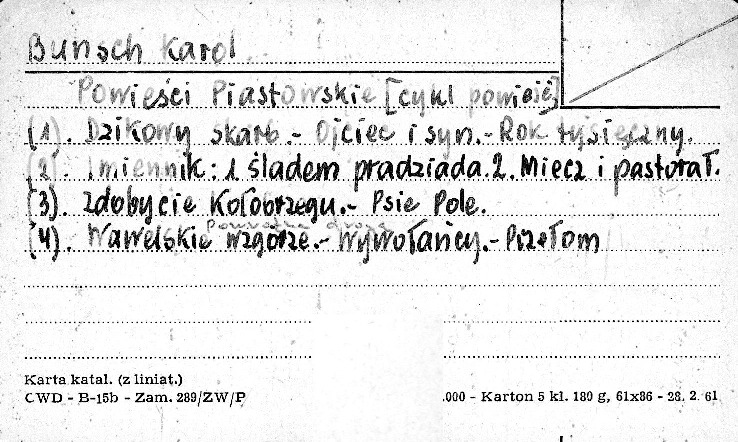 Bunsch Karol
Powieści Piastowskie [cykl powieść]
(1). Dzikowy skarb.- Ojciec i syn.- Rok tysięczny.
(2). Imiennik: 1 śladem pradziada. 2. Miecz i pastorał.
(3). Zdobycie Kołobrzegu.- Psie Pole.
Powrotna droga
(4). Wawelskie wzgórze.- Wywołańcy.- Przełom
Karta katal. (z liniat.)
CWD - B-15b - Zam. 289/ZW/P
.000 - Karton 5 kl. 180 g, 61x86 - 28. 2. 61